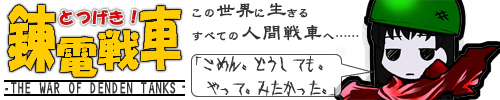 とつげき！
錬電戦車
-THE WAR OF DENDEN TANKS-
この世界に生きる
すべての人間戦車へ……
「ごめん。どうしても。
やって。みたかった。」